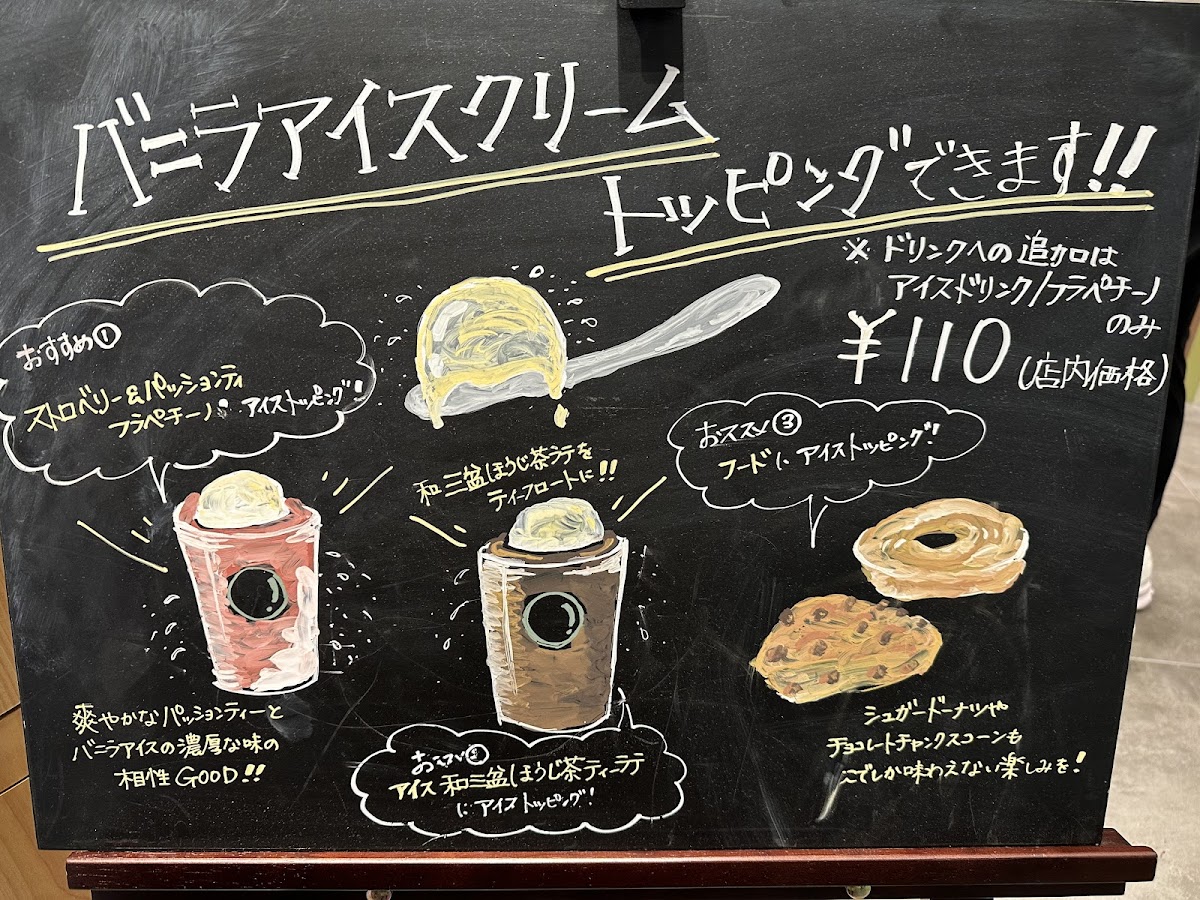 バニラアイスクリーム
トッピングできます!!
※ ドリンクへの追加は
アイスドリンク/フラペチーノ
のみ
¥110 (店内価格)
おすすめ①
ストロベリー&パッションティ
フラペチーノに アイストッピング!
和三盆ほうじ茶ラテを
ティーフロートに!!
おススメ③
フードに アイストッピング!
爽やかなパッションティーと
バニラアイスの濃厚な味の
相性GOOD!!
おススメ②
アイス 和三盆ほうじ茶ティーラテ
に アイストッピング!
シュガードーナツや
チョコレートチャンクスコーンも
ここでしか味わえない楽しみを!